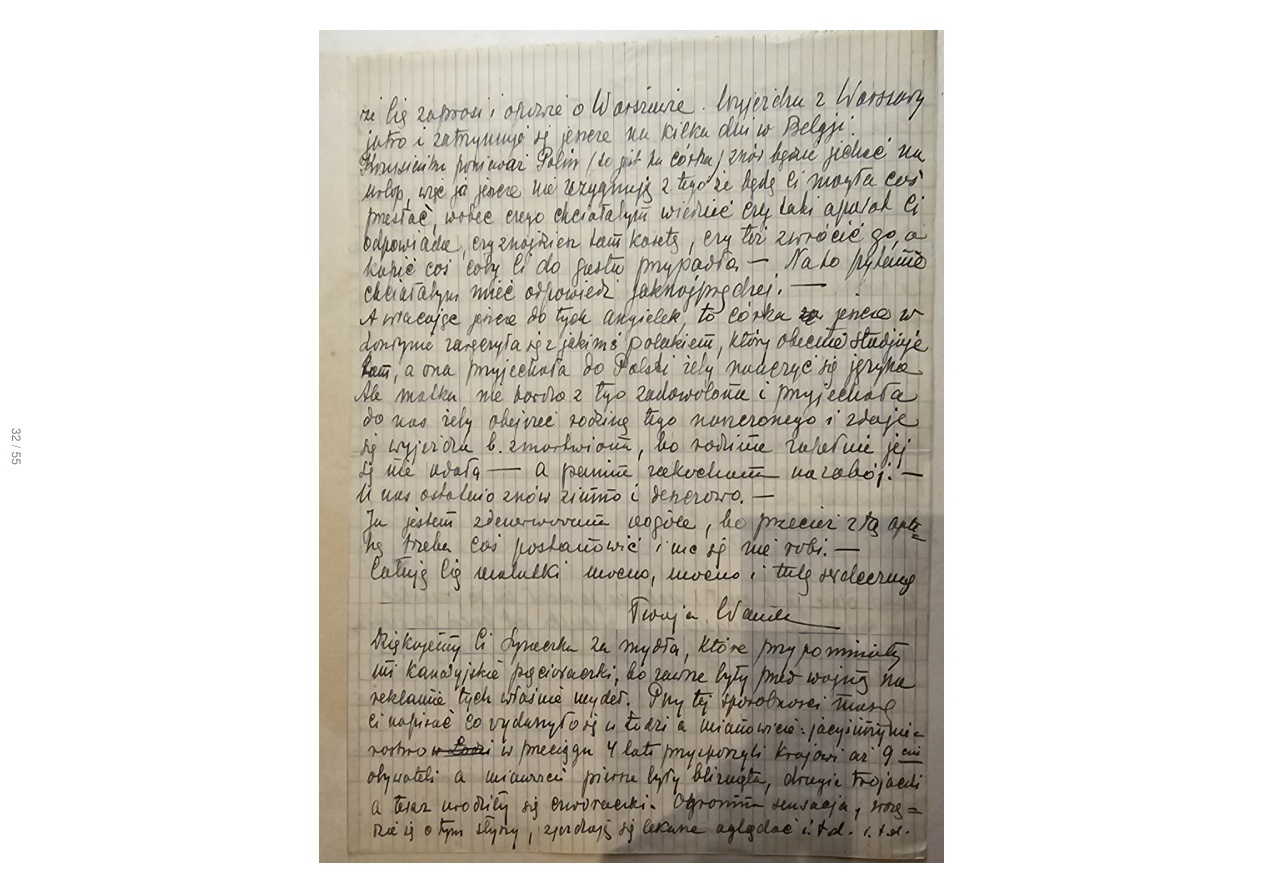 że Cię zaprosi i opowie o Warszawie. Wyjeżdża z Warszawy
jutro i zatrzymuje się jeszcze na kilka dni w Belgji.
ponieważ Polin / to jest ta córka / znów będzie jechać na
urlop, więc ja jeszcze nie rezygnuję z tego że będę Ci mogła coś
przesłać, wobec czego chciałabym wiedzieć czy taki aparat Ci
odpowiada, czy znajdziesz tam kasetę, czy też zwrócić go, a
kupić coś coby Ci do gustu przypadło — Na to pytanie
chciałabym mieć odpowiedź jaknajprędzej. —
A wracając jeszcze do tych angielek, to córka jeszcze w
Londynie zaręczyła się z jakimś polakiem, który obecnie studjuje
tam, a ona przyjechała do Polski żeby nauczyć się języka
Ale matka nie bardzo z tego zadowolona i przyjechała
do nas żeby obejrzeć rodzinę tego narzeczonego i zdaje
się wyjeżdża b. zmartwiona, bo rodzina zupełnie jej
się nie udała — a panna zakochana na zabój. —
U nas ostatnio znów zimno i deszczowo. —
Ja jestem zdenerwowana wogóle, bo przecież z tą
trzeba coś postanowić i nic się nie robi. —
Całuję Cię malutki mocno, mocno i tulę serdecznie
Twoja Wanda
Dziękujemy Ci Syneczku za mydła, które przypominały
mi kanadyjskie pięcioraczki, bo zawsze były przed wojną na
reklamie tych właśnie mydeł. Przy tej sposobności muszę
ci napisać co wydarzyło się w Łodzi a mianowicie: jacyś inżynie-
rostwo w Łodzi w przeciągu 4 lat przysporzyli krajowi aż 9 ciu
obywateli a mianowicie pierwsze były bliźnięta, drugie trojaczki
a teraz urodziły się czworaczki. Ogromna sensacja, wszę-
dzie się o tym słyszy, zjeżdżają się lekarze oglądać i.t.d. i.t.d.
32 / 55